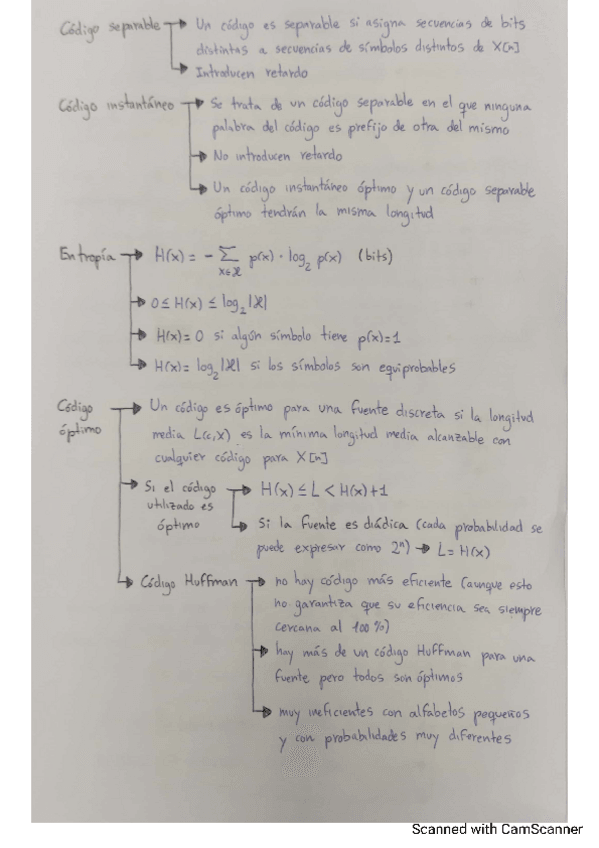 Código separable → Un código es separable si asigna secuencias de bits
distintas a secuencias de símbolos distintos de X[n]
→ Introducen retardo
Código instantáneo → Se trata de un código separable en el que ninguna
palabra del código es prefijo de otra del mismo
→ No introducen retardo
→ Un código instantáneo óptimo y un código separable
óptimo tendrán la misma longitud
Entropía → H(x) = - Σ p(x) · log₂ p(x) (bits)
x∈𝒳
→ 0 ≤ H(x) ≤ log₂|𝒳|
→ H(x) = 0 si algún símbolo tiene p(x)=1
→ H(x) = log₂|𝒳| si los símbolos son equiprobables
Código óptimo → Un código es óptimo para una fuente discreta si la longitud
media L(c,X) es la mínima longitud media alcanzable con
cualquier código para X[n]
→ Si el código utilizado es óptimo → H(x) ≤ L < H(x)+1
→ Si la fuente es diádica (cada probabilidad se
puede expresar como 2ⁿ) → L = H(x)
→ Código Huffman → no hay código más eficiente (aunque esto
no garantiza que su eficiencia sea siempre
cercana al 100%)
→ hay más de un código Huffman para una
fuente pero todos son óptimos
→ muy ineficientes con alfabetos pequeños
y con probabilidades muy diferentes
Scanned with CamScanner